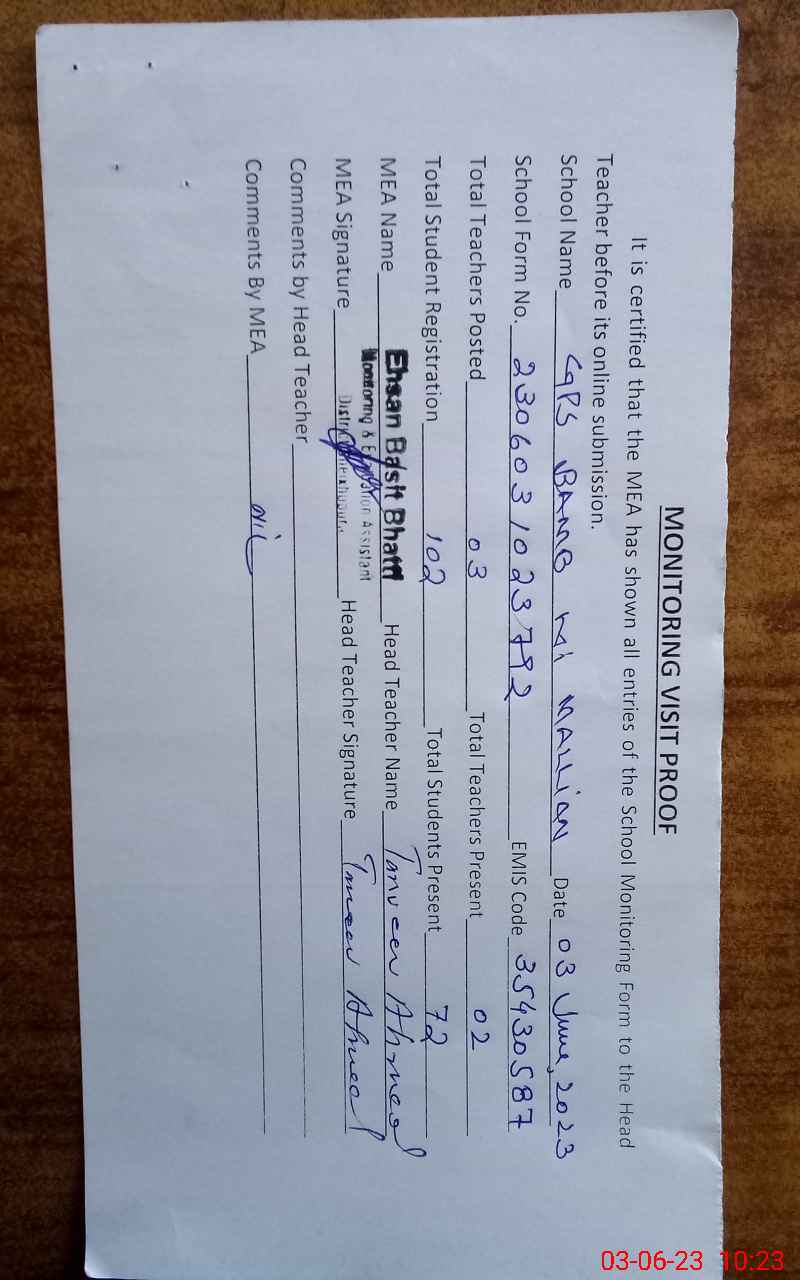 MONITORING VISIT PROOF
It is certified that the MEA has shown all entries of the School Monitoring Form to the Head
Teacher before its online submission.
School Name GPS BAMB MALLIAN Date 03 June, 2023
School Form No. 2306031023792 EMIS Code 35430587
Total Teachers Posted 03 Total Teachers Present 02
Total Student Registration 102 Total Students Present 72
MEA Name Ehsan Basit Bhatti Head Teacher Name Tanveer Ahmed
Monitoring & Evaluation Assistant
MEA Signature Head Teacher Signature Tanveer Ahmed
Comments by Head Teacher
Comments By MEA Nil
03-06-23 10:23